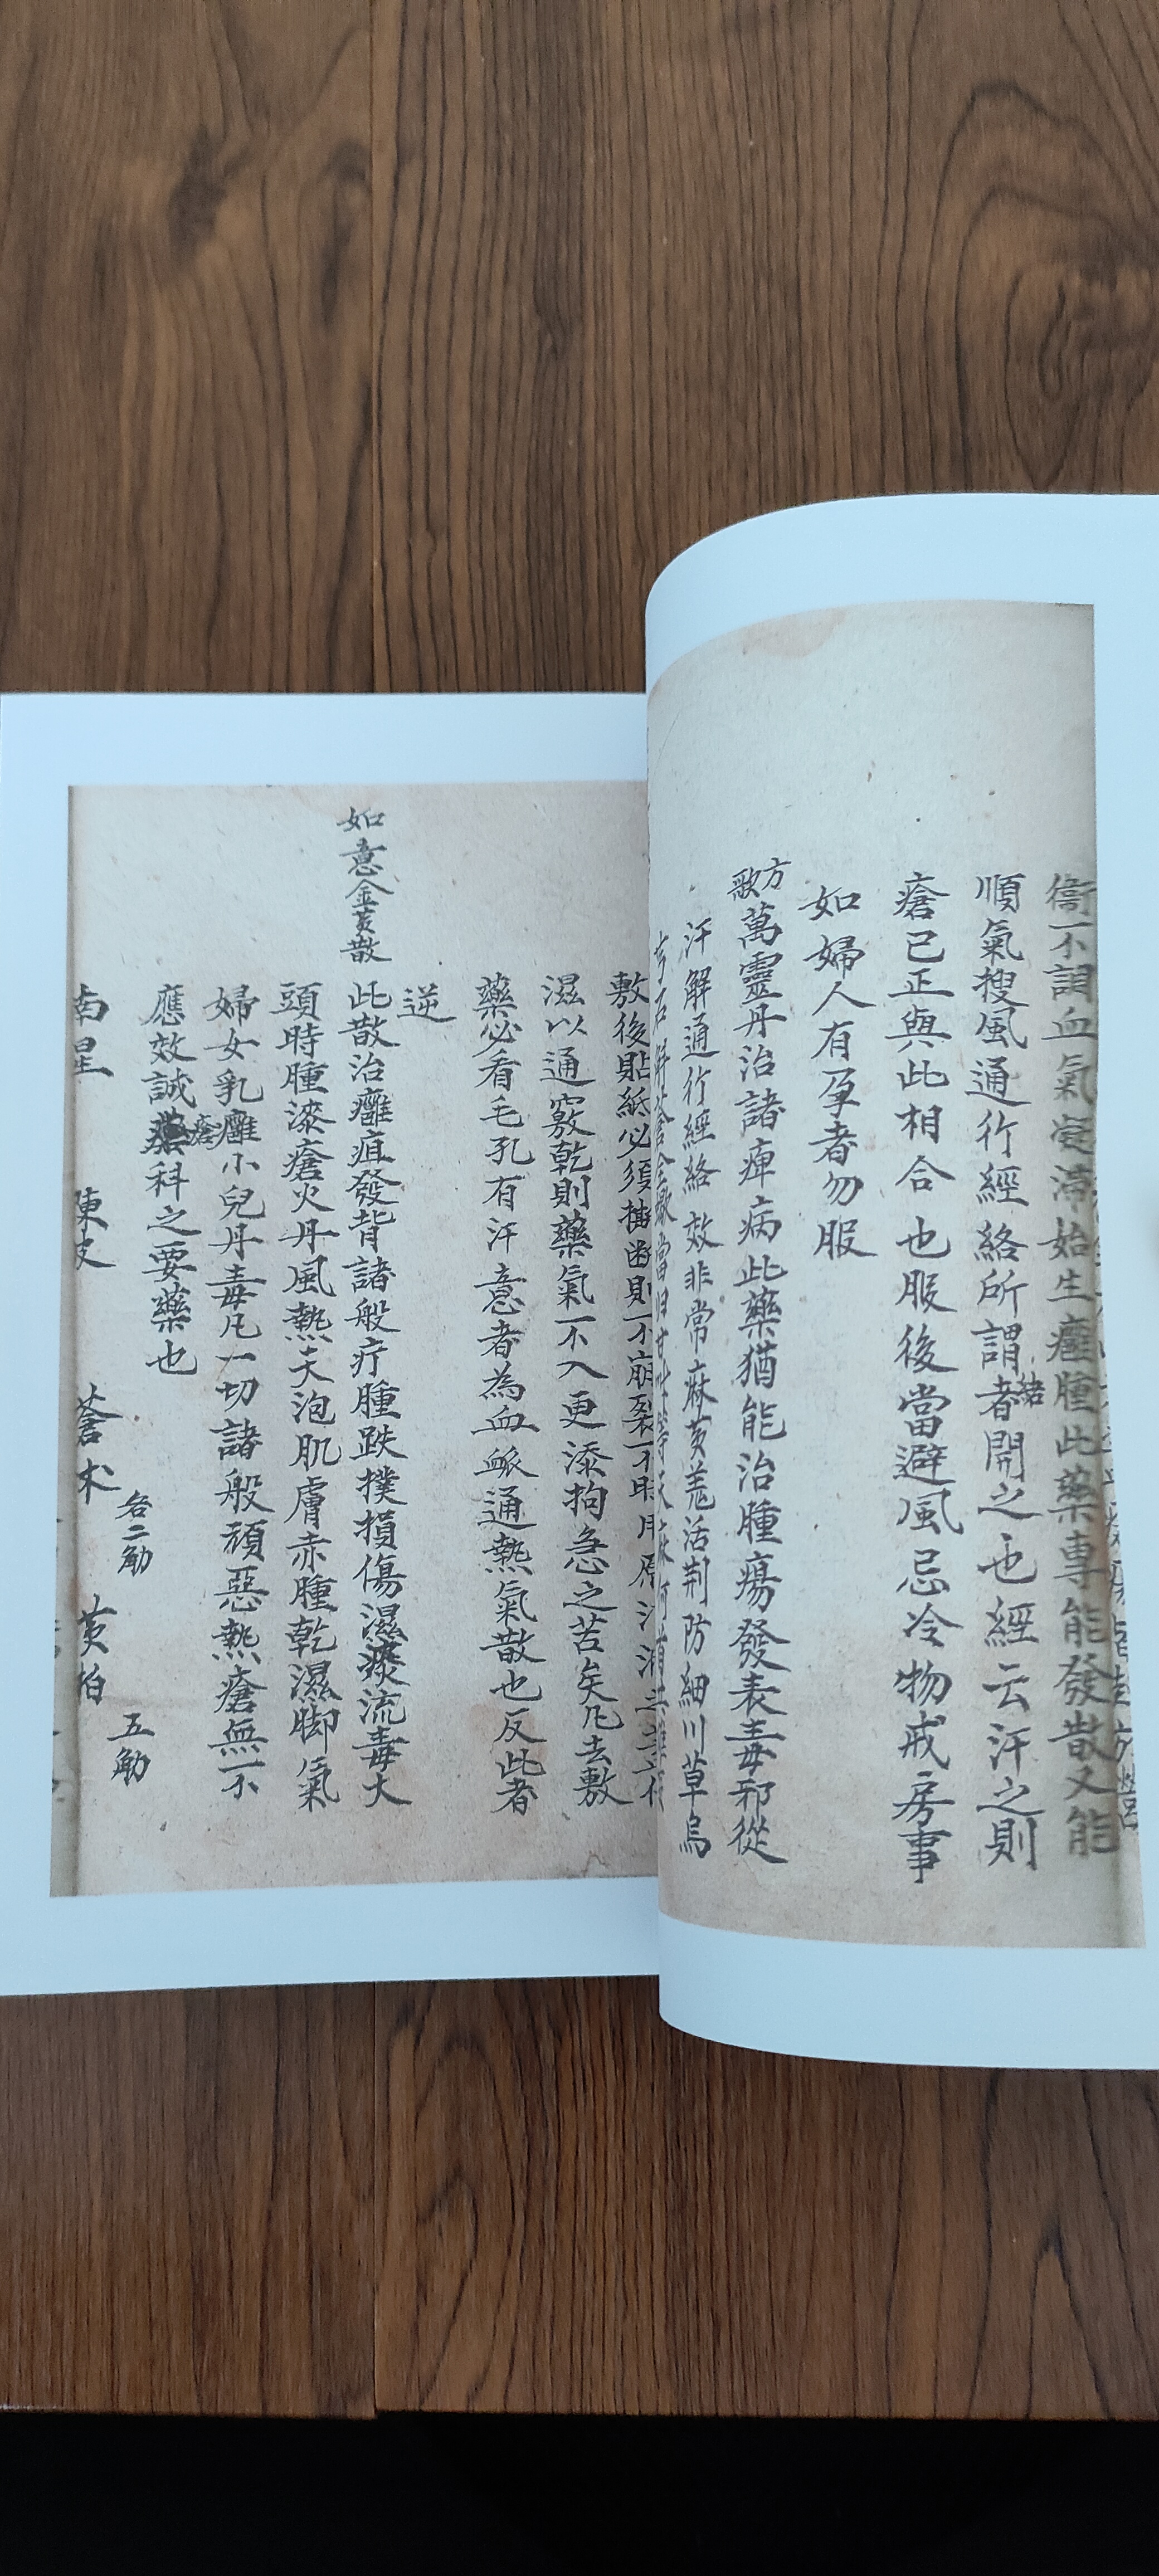 衛不調血氣凝滯始生癰腫此藥專能發散又能
順氣搜風通行經絡所謂結者開之也經云汗之則
瘡已正與此相合也服後當避風忌冷物戒房事
如婦人有孕者勿服
方歌
萬靈丹治諸痺病此藥猶能治腫瘍發表毒邪從
汗解通行經絡效非常麻黃羌活荊防細川草烏
敷後貼紙必須
滋以通竅乾則藥氣不入更添拘急之苦矣凡去敷
藥必看毛孔有汗意者為血脈通熱氣散也反此者
逆
如意金黃散
此散治癰疽發背諸般疔腫跌撲損傷濕痰流毒大
頭時腫漆瘡火丹風熱天泡肌膚赤腫乾濕腳氣
婦女乳癰小兒丹毒凡一切諸般頑惡熱瘡無不
應效誠瘡科之要藥也
南星 陳皮 蒼朮 各二觔 黃柏 五觔